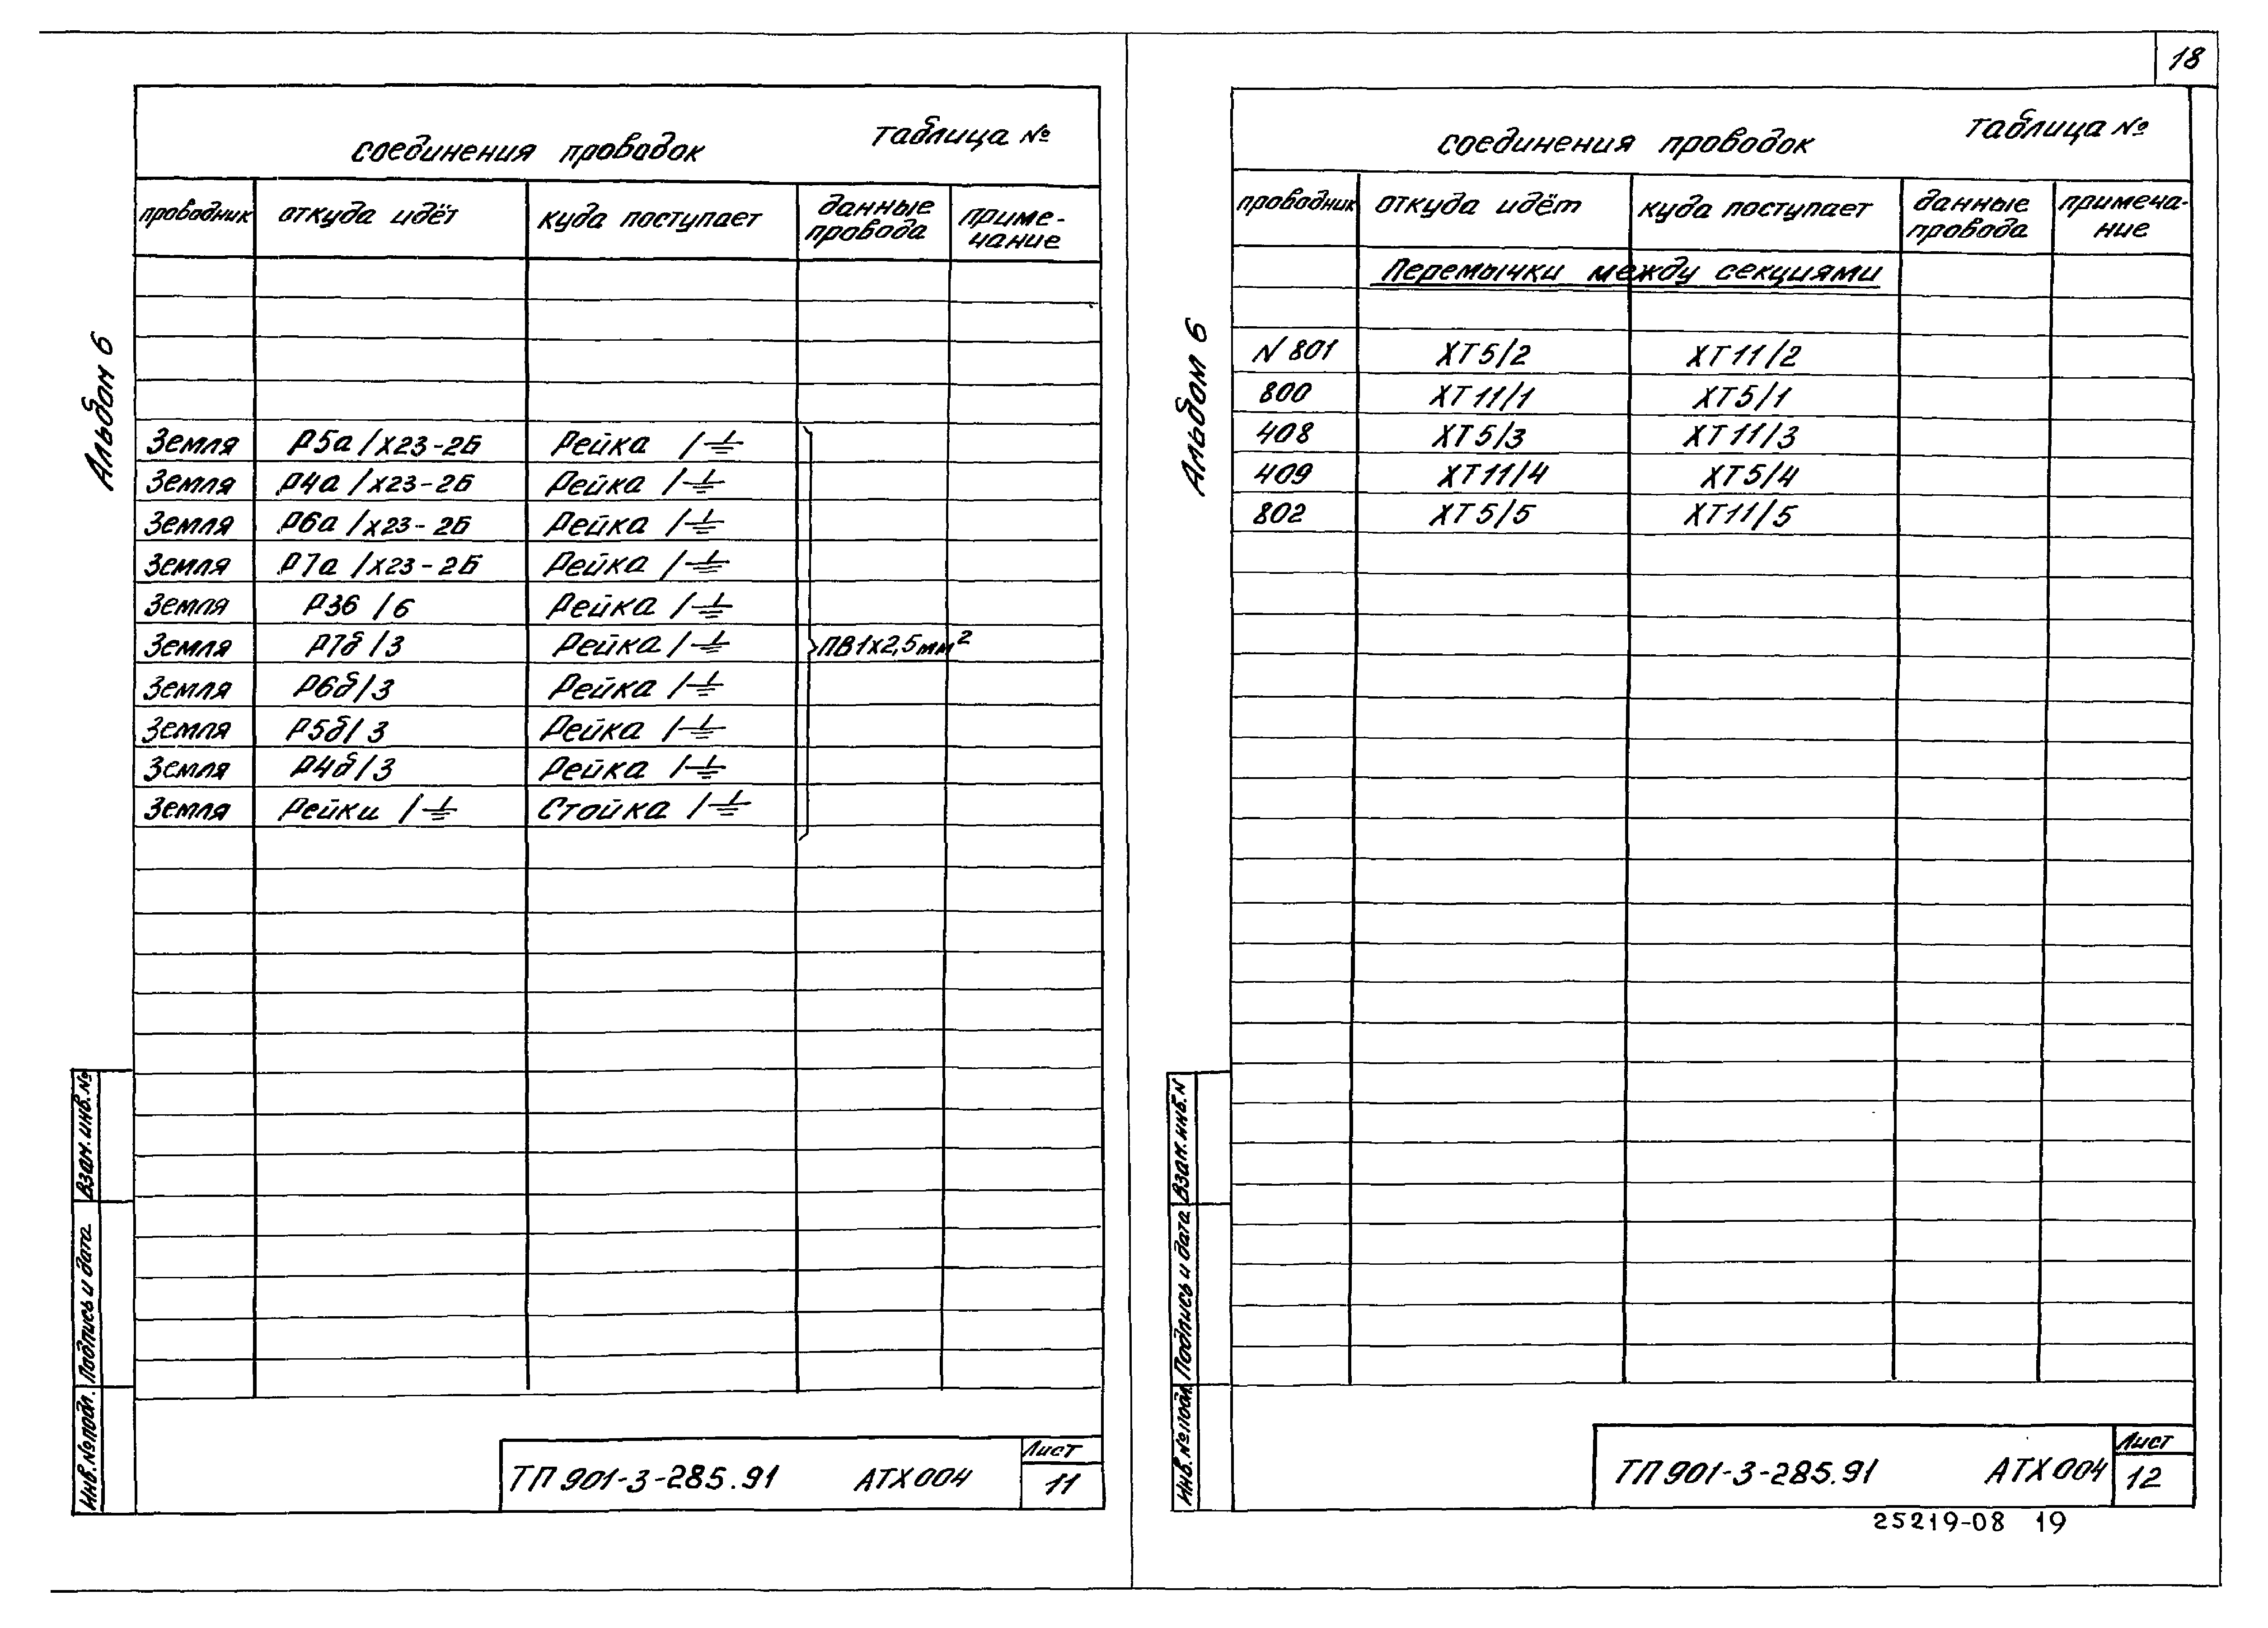 18
Альбом 6
соединения проводок
Таблица №
проводник откуда идёт куда поступает данные провода приме-чание
Земля Р5а/Х23-2Б Рейка /⏚
Земля Р4а/Х23-2Б Рейка /⏚
Земля Р6а/Х23-2Б Рейка /⏚
Земля Р7а/Х23-2Б Рейка /⏚
Земля Р36/6 Рейка /⏚
Земля Р7б/3 Рейка /⏚ ПВ1х2,5мм²
Земля Р6б/3 Рейка /⏚
Земля Р5б/3 Рейка /⏚
Земля Р4б/3 Рейка /⏚
Земля Рейки /⏚ Стойка /⏚
Взам.инв.№
Подпись и дата
Инв.№подл.
ТП 901-3-285.91 АТХ004
Лист
11
Альбом 6
соединения проводок
Таблица №
проводник откуда идёт куда поступает данные провода примеча-ние
Перемычки между секциями
N 801 ХТ5/2 ХТ11/2
800 ХТ11/1 ХТ5/1
408 ХТ5/3 ХТ11/3
409 ХТ11/4 ХТ5/4
802 ХТ5/5 ХТ11/5
Взам.инв.N
Подпись и дата
Инв.№подл.
ТП 901-3-285.91 АТХ004
Лист
12
25219-08 19